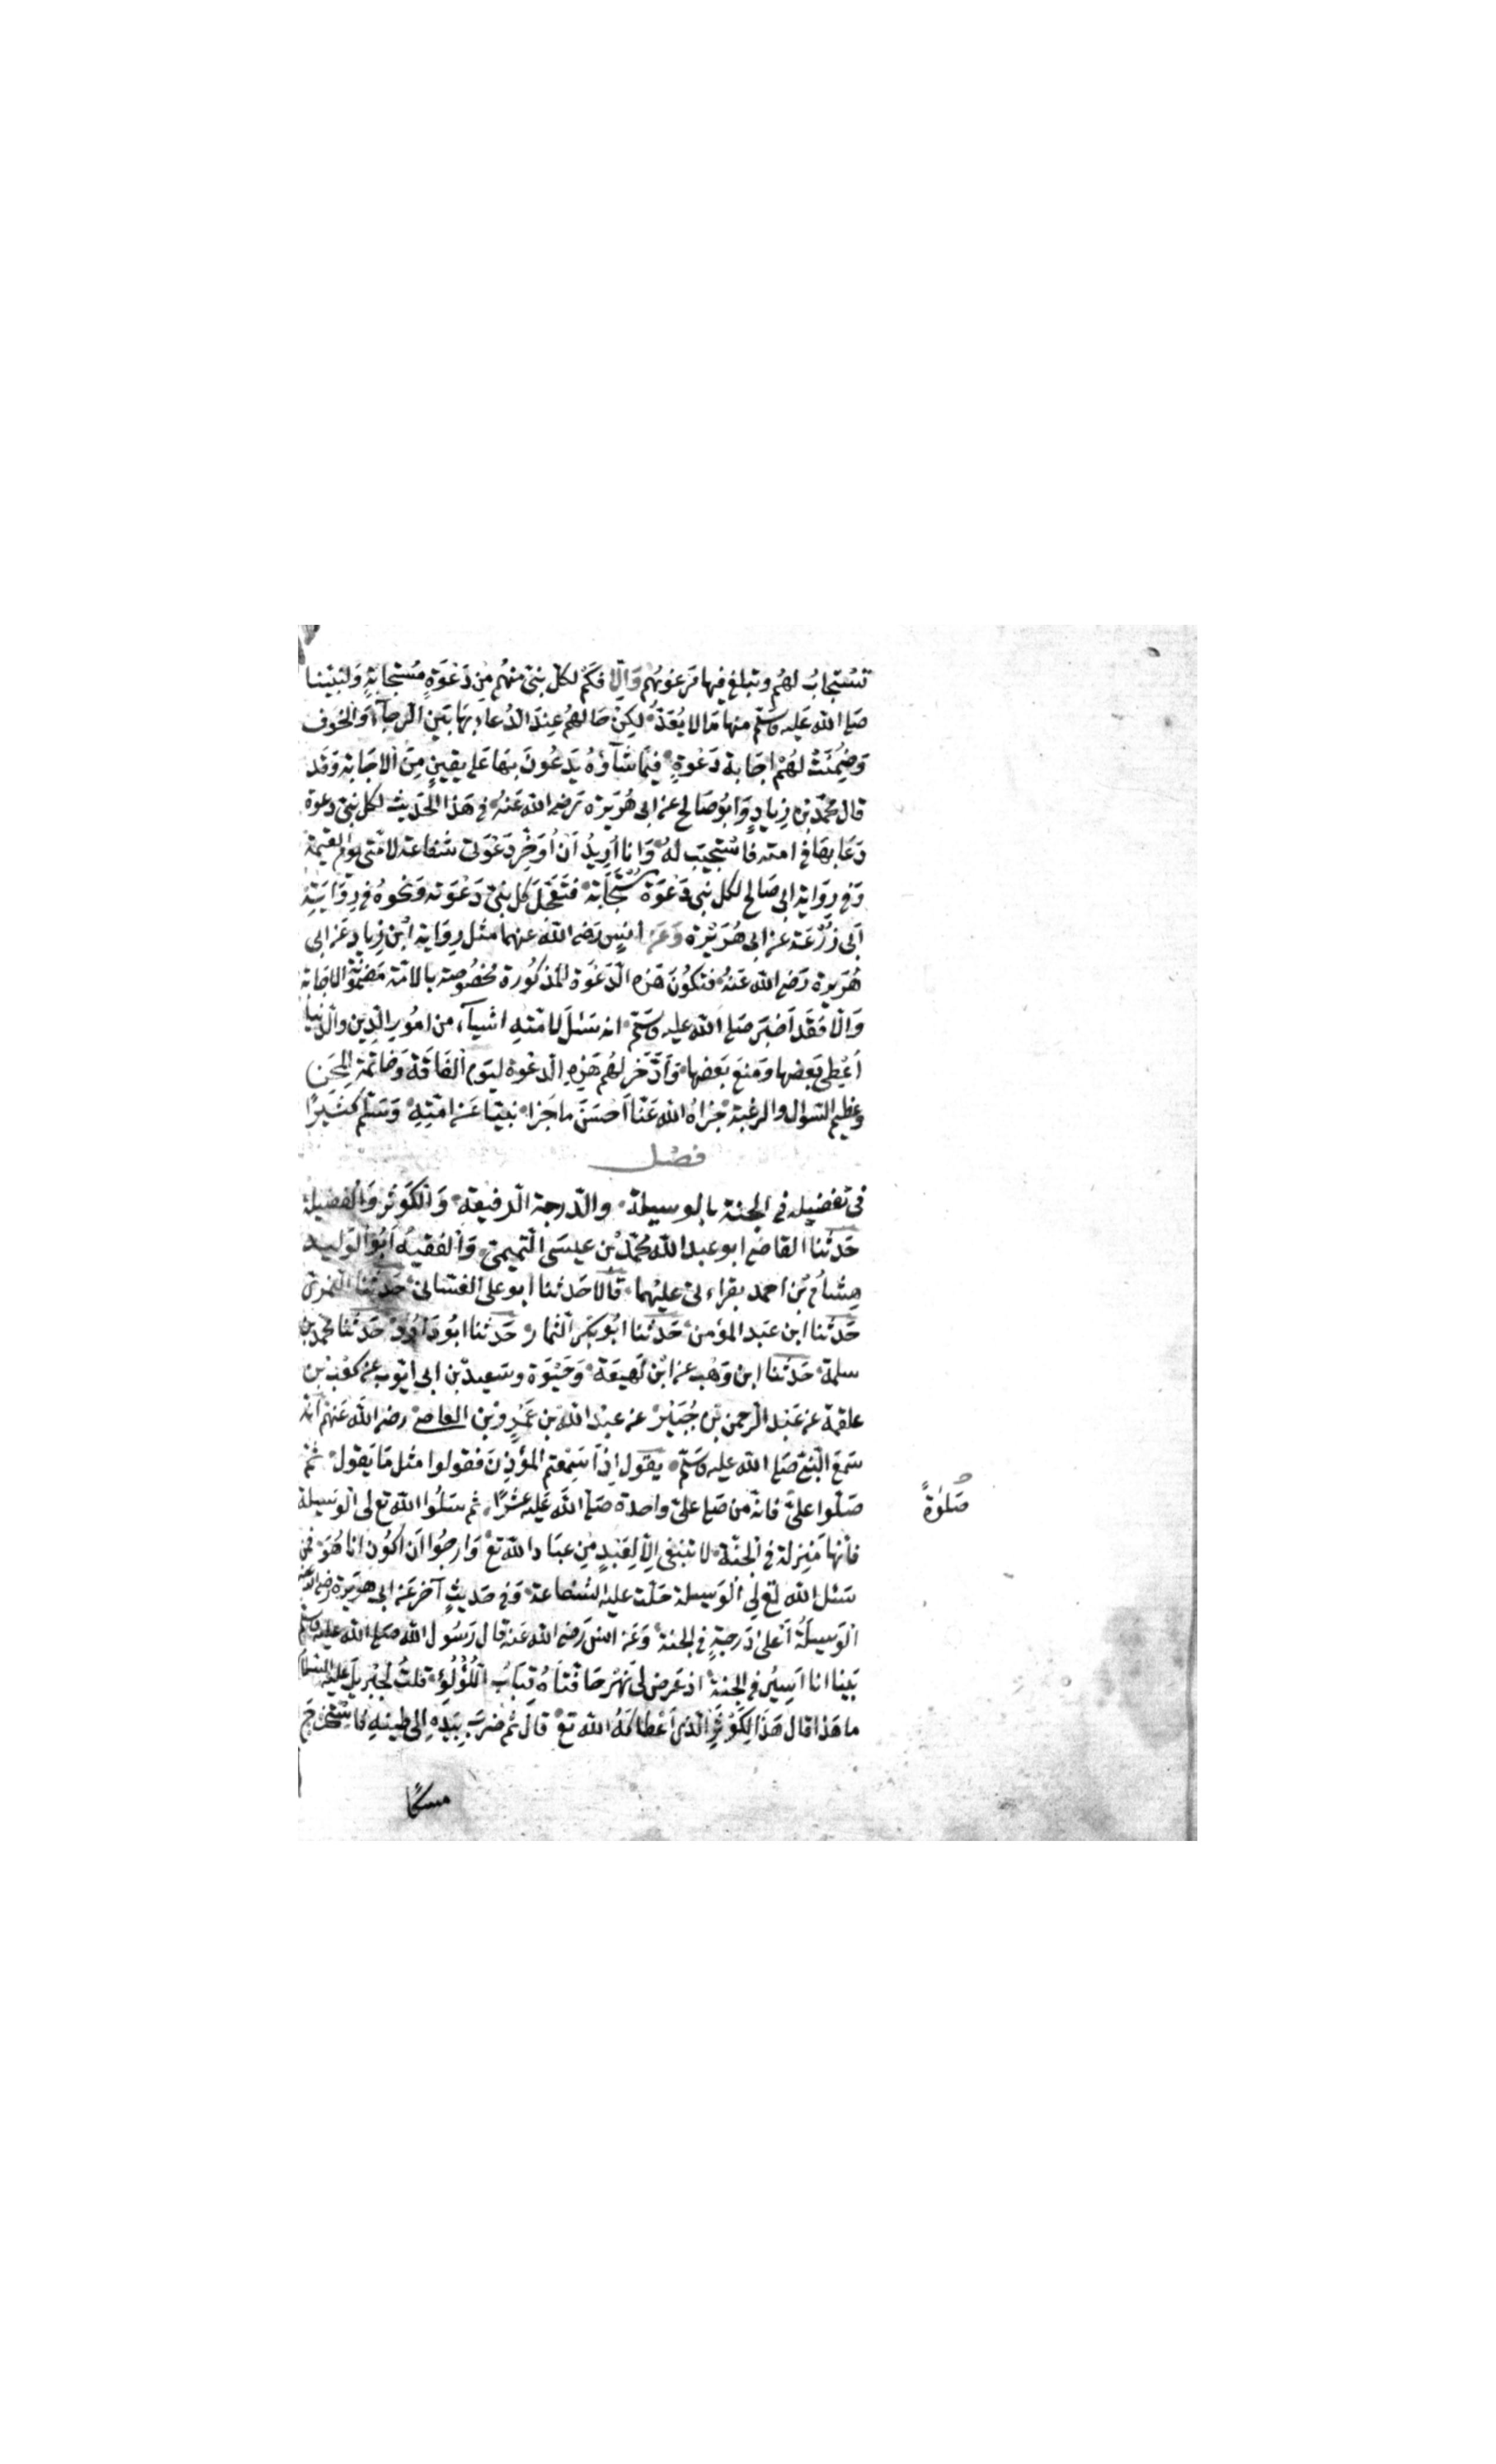 تُسْتَجَابُ لهُم ويَبلغ فيها مَرغوبُهم وَاِلّا فكَمْ لكلّ نبىّ منهُم مِن دَعْوَةٍ مُسْتجابَةٍ وَلنَبِيّنا
صَلى الله عَليه وسَلّم منها مَا لا يُعَدّ لكِنْ حَالهُم عِندَ الدُعاء بهَا بَين الرجآء وَالخوَف
وَضُمِنَتْ لهُمْ اجَابة دَعْوةٍ فيمَا شَآؤهُ يَدعُونَ بهَا عَلى يقينٍ مِنَ الاجَابة وَقد
قال محمّد بن زِيادٍ وَابوُ صَالح عن ابى هُرَيرَة رَضى الله عَنهُ فى هَذا الحَديث لكل نبىّ دعوة
دَعَا بهَا فى امته فاسْتجيبَ لهُ وَانا أريدُ اَنْ اُوَخّر دَعْوَتى شفاعة لامّتى يومَ القيمة
وَفى رِوَاية ابى صَالح لكل نبى دَعْوَة مُسْتجَابَة فتَعَجّلَ كلّ نبىّ دَعْوَته وَنحوهُ فى رِوَايَةِ
اَبى زُرْعَة عَن ابى هُرَيْرة وَعَن انسٍ رَضى الله عنهما مثل رِوَاية ابْن زِيادٍ عَن ابى
هُرَيرة رَضى الله عَنهُ فتكوُنَ هَذِه الدّعْوَة المذكُورة مخصُوصة بالامّة مَضمُونَة الاجَابة
وَاِلّا فقَد اَخبَر صَلى الله عليه وسَلّم انه سَئلَ لامّتِهِ اشيآءَ من امُورِ الدِين والدّنيا
اُعْطِى بَعضها ومُنعَ بَعضها وَادّخَر لهُم هَذِهِ الدّعْوة ليَوم الفَاقَة وَخَاتمة المِحَن
وعَظِيم السّؤال والرغبة جَزاهُ الله عَنا اَحْسَنَ ما جَزا نبيّا عَن امّتِهِ وَسَلّم كثيرًا
فصْل
فى تفضيله فى الجنة بالوسيلة والدّرجة الرفيعة وَالكَوثر وَالفضيلة
حَدثنا القاضى ابو عبد الله محمّد بْن عيسَى التميمىّ وَالفقيهُ اَبُو الوَليد
هِشامُ بْن احمد بقراءتى عليْهما قالا حَدثنا ابو على الغسّانىّ حَدّثنا النمرىّ
حَدثنا ابن عبَد المؤمن حَدثنا ابُو بَكر التّمار حَدثنا ابُو دَاوُد حَدثنا محمد بن
سلمة حَدثنا ابن وَهْب عن ابْن لَهيعَة وَحَيْوَة وسَعيد بْن ابى ايّوب عن كعْب بْن
علقمة عن عَبْد الرّحمن بْن جُبَيْر عن عبْد الله بن عَمْرِو بْن العاصى رضى الله عَنهم انه
سَمعَ النبىّ صَلى الله عليه وسَلّم يقول اِذا سَمِعْتم المؤذِنَ فقولوا مثل مَا يَقول ثمّ
صَلّوا علىّ فانه من صَلى علىّ واحدة صَلى الله عَليه عَشْرًا ثم سَلُوا الله تعَلى الوَسيلة
فانّها مَنزِلة فى الجنّة لا تنبغى اِلّا لِعَبْدٍ مِن عبَادِ الله تعَ وَارجُوا اَن اكُون انا هُوَ فمَن
سَئل الله تعَلى الوَسيلة حَلّت عليْه الشفاعة وَفى حَديثٍ آخر عَن ابى هريَرة رضى الله عنه
الوَسيلةُ اَعْلى دَرجَةٍ فى الجنة وَعَن انس رَضى الله عَنه قال رَسُول الله صَلى الله عليه وسلم
بَينا انا اَسِيرُ فى الجنة اذ عَرضَ لى نَهْر حَافتاهُ قِبَابُ اللؤلُؤ قلتُ لجبْريل عليه السّلام
ما هَذا قال هَذَا الكَوْثَر الّذى اَعْطاكهُ الله تعَ قالَ ثمّ ضرَبَ بِيَدِهِ اِلى طينِهِ فاسْتخرَجَ
مسكًا
صَلوٰةً